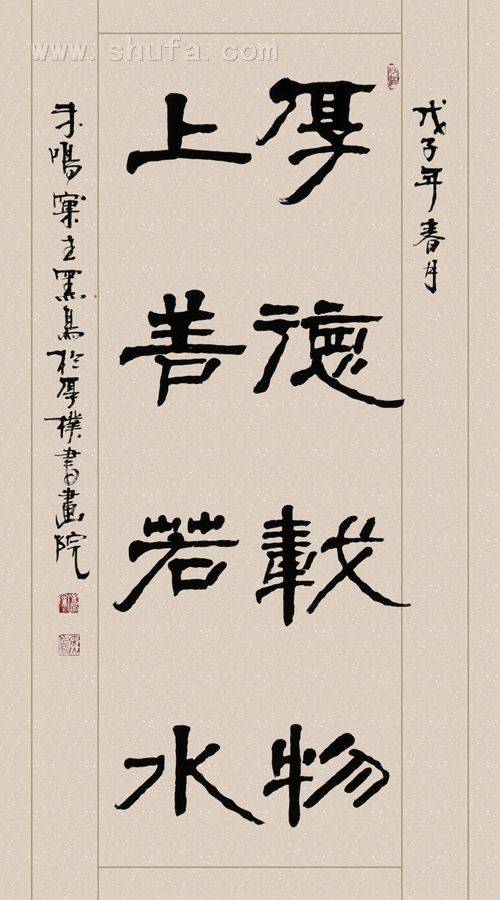 www.shufa.com
戊子年春月
厚德載物
上善若水
鳴主黑鳥於厚樸書畫院